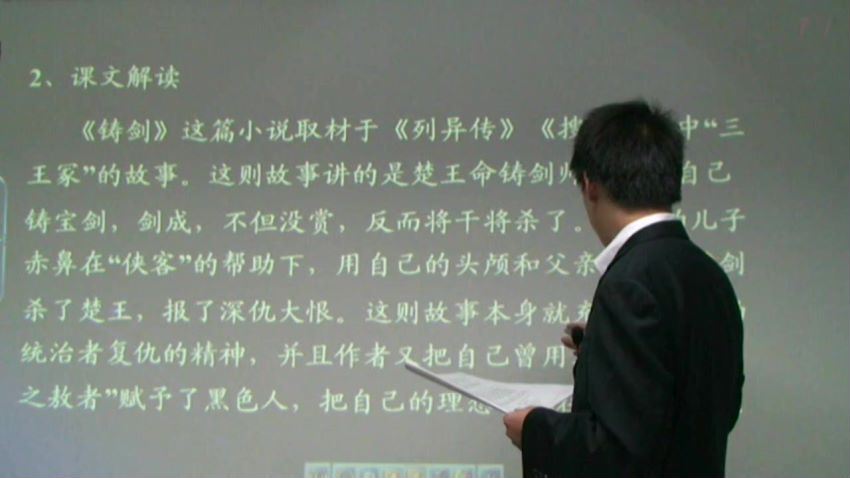 2、课文解读
《铸剑》这篇小说取材于《列异传》《搜 中“三
王冢”的故事。这则故事讲的是楚王命铸剑师 自己
铸宝剑，剑成，不但没赏，反而将干将杀了。 儿子
赤鼻在“侠客”的帮助下，用自己的头颅和父亲 剑
杀了楚王，报了深仇大恨。这则故事本身就
统治者复仇的精神，并且作者又把自己曾用
之敖者”赋予了黑色人，把自己的理想